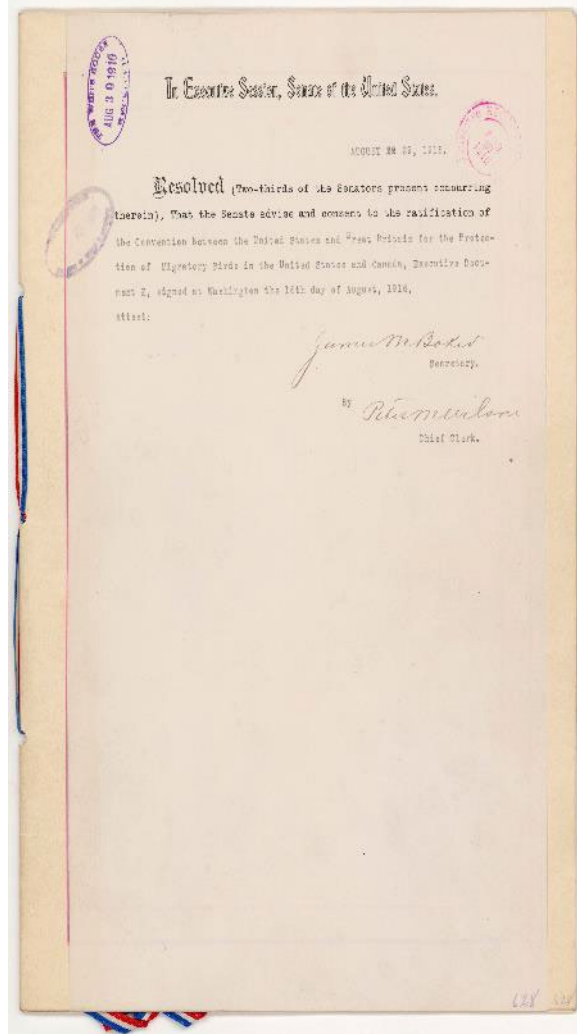 THE WHITE HOUSE
AUG 30 1916
RECEIVED
In Executive Session, Senate of the United States.
AUGUST 29, 1916.
Resolved (Two-thirds of the Senators present concurring
therein), That the Senate advise and consent to the ratification of
the Convention between the United States and Great Britain for the Protec-
tion of Migratory Birds in the United States and Canada, Executive Docu-
ment Z, signed at Washington the 16th day of August, 1916.
Attest:
James M. Baker
Secretary.
By
Peter M Wilson
Chief Clerk.
628